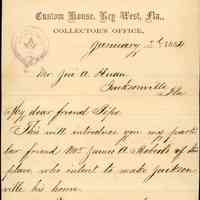 Custom House, Key West, Fla.,
COLLECTOR'S OFFICE,
January 188
Mr. Jos A.
Jacksonville
Fla
My dear friend
This will introduce you my particu
lar friend Mr. James A. Roberts of this
place who intent to make Jackson
ville his home.